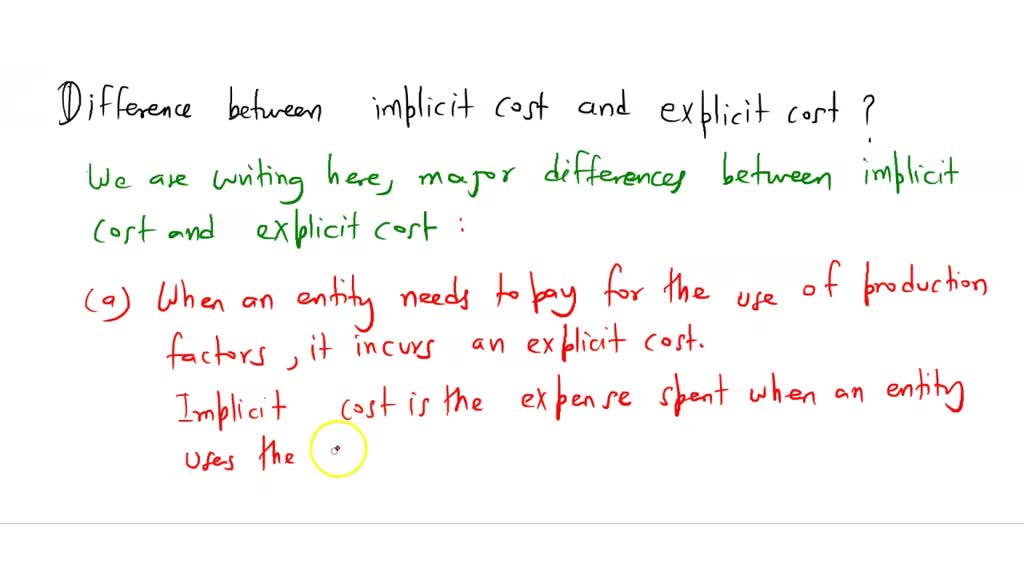 Difference between implicit cost and explicit cost ?
We are writing here, major differences between implicit
cost and explicit cost :
(a) When an entity needs to pay for the use of production
factors, it incurs an explicit cost.
Implicit cost is the expense spent when an entity
uses the